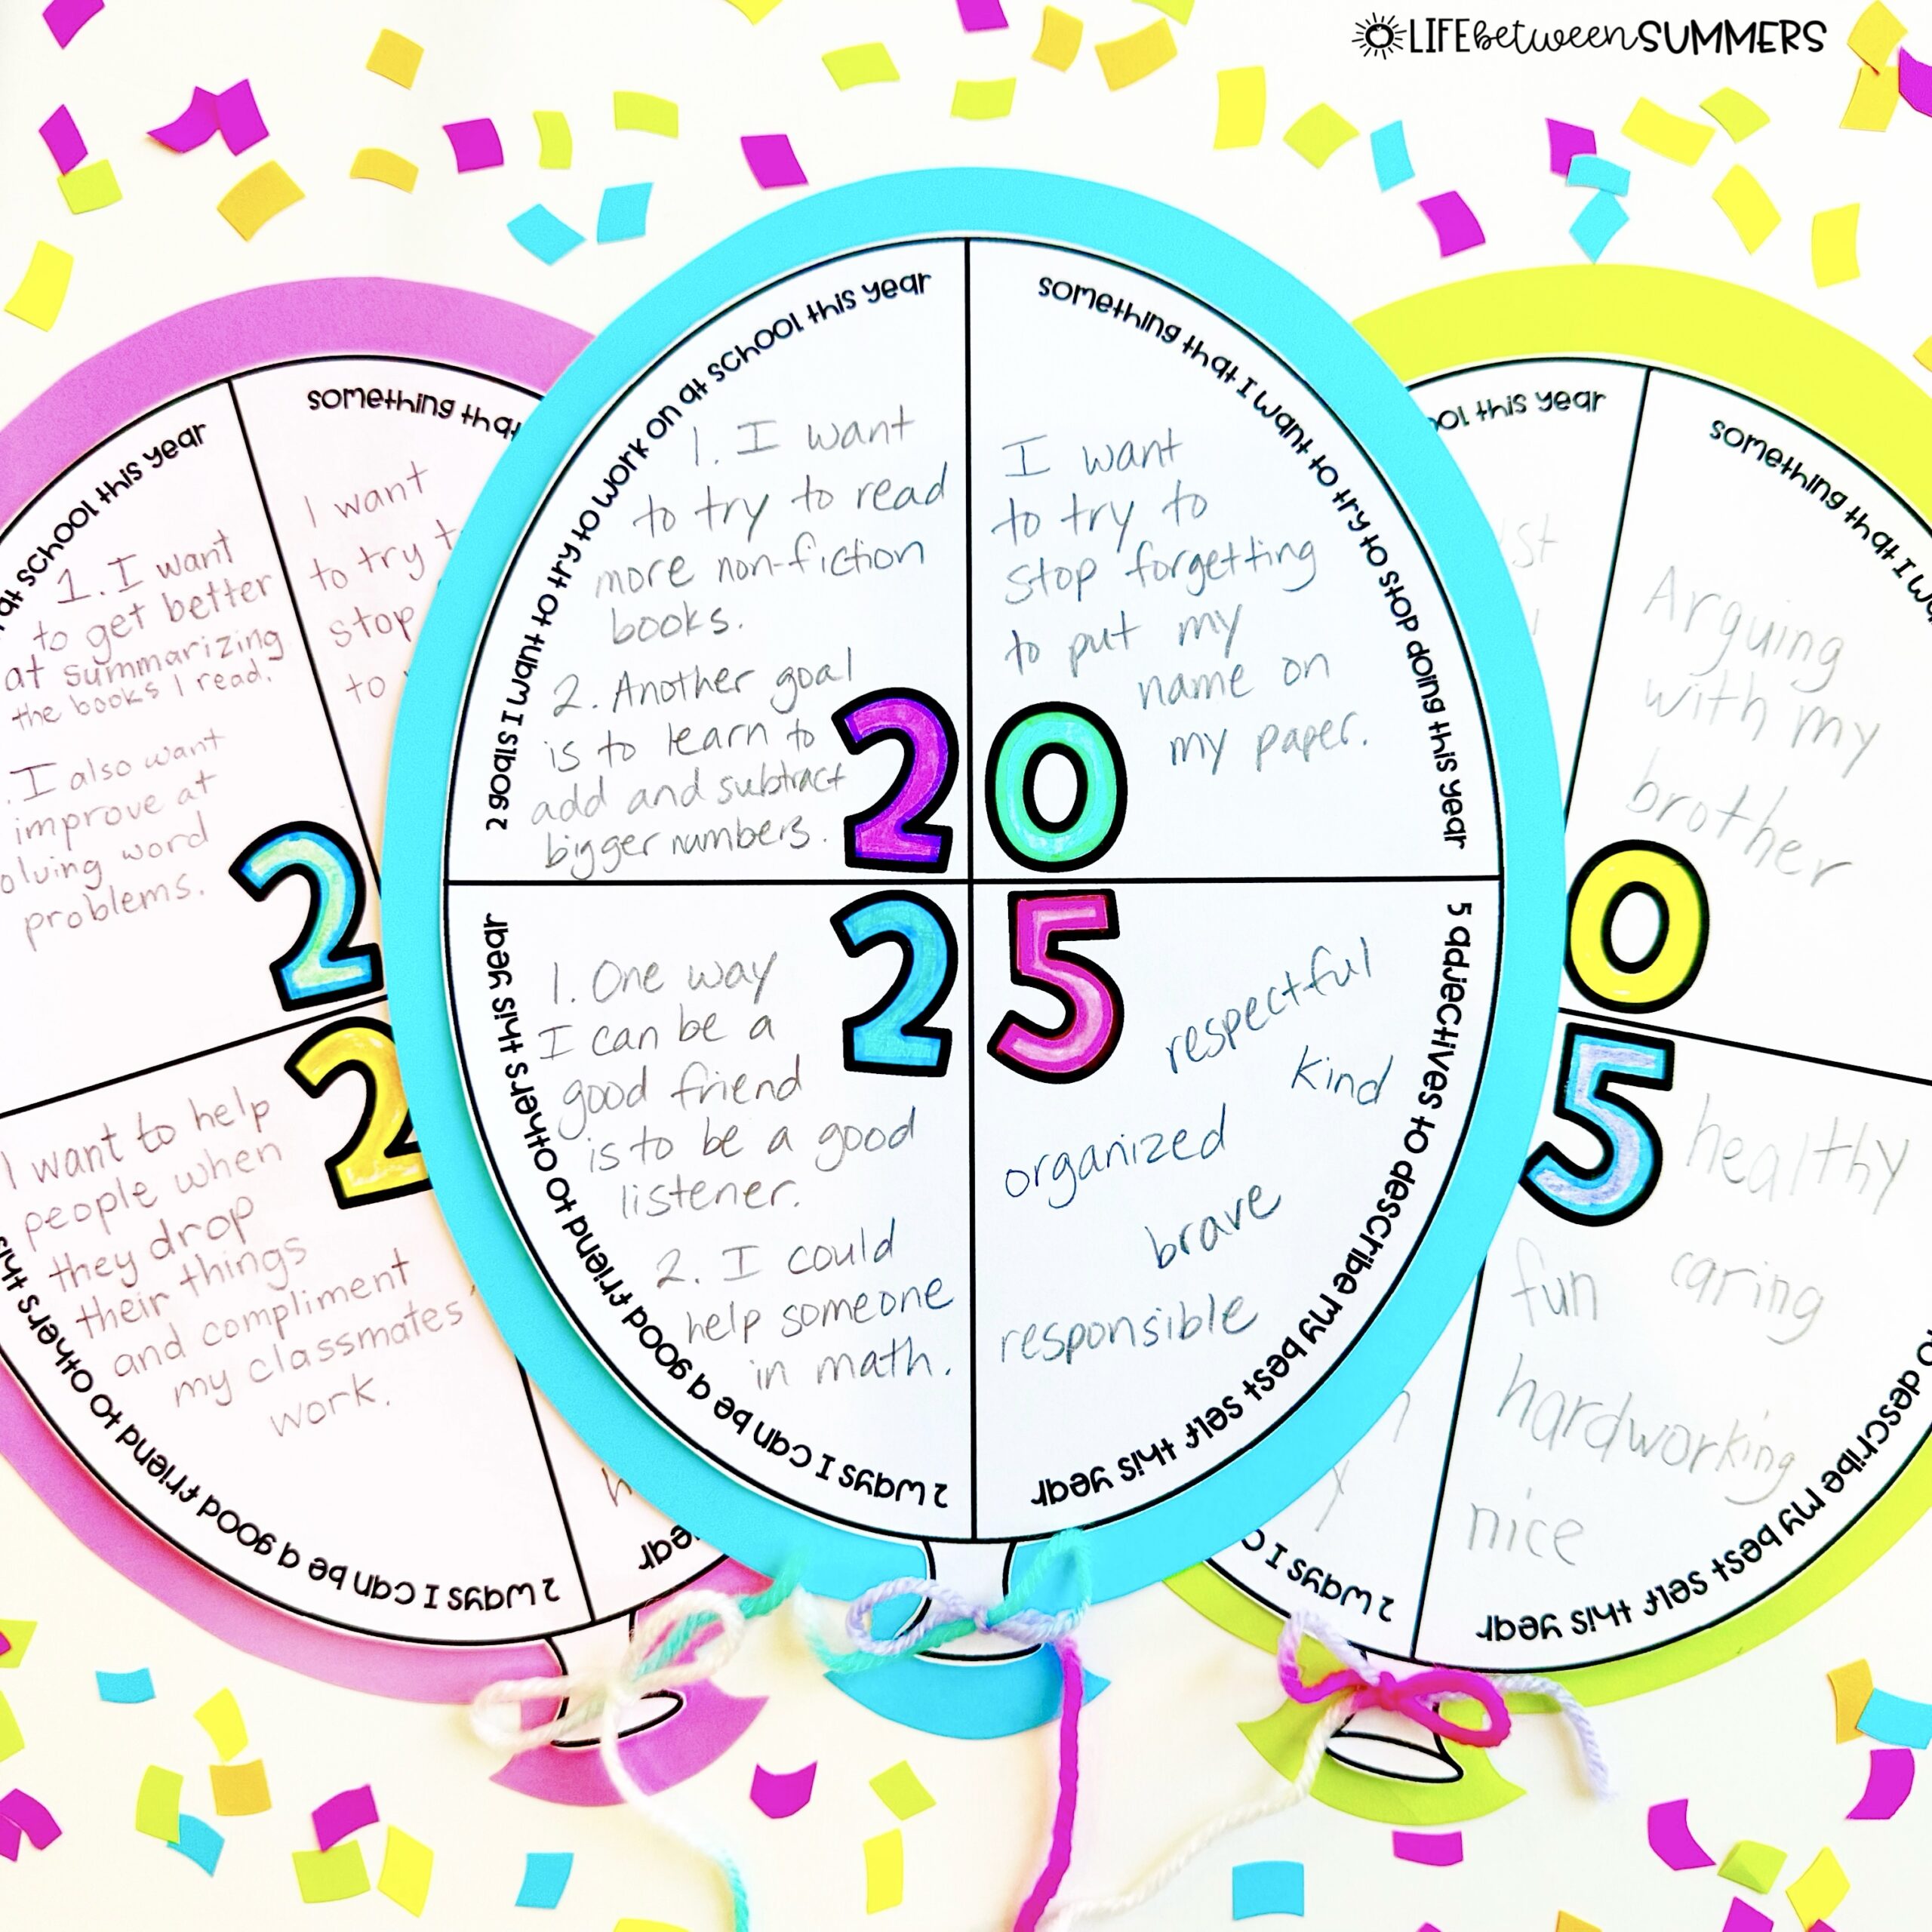 LIFE between SUMMERS
at school this year
1. I want
to get better
at summarizing
the books I read.
I also want
improve at
olving word
problems.
something that
I want
to try t
stop
to
2
2
I want to help
people when
they drop
their things
and compliment
my classmates'
work.
2 ways I can be a good friend to others this
year
2 goals I want to try to work on at school this year
1. I want
to try to read
more non-fiction
books.
2. Another goal
is to learn to
add and subtract
bigger numbers.
something that I want to try to stop doing this year
I want
to try to
stop forgetting
to put my
name on
my paper.
20
25
2 ways I can be a good friend to others this year
1. One way
I can be a
good friend
is to be a good
listener.
2. I could
help someone
in math.
5 adjectives to describe my best self this year
respectful
kind
organized
brave
responsible
ool this year
something that I wa
Arguing
with my
brother
0
5
2 ways I c
healthy
fun
caring
hardworking
nice
to describe my best self this year